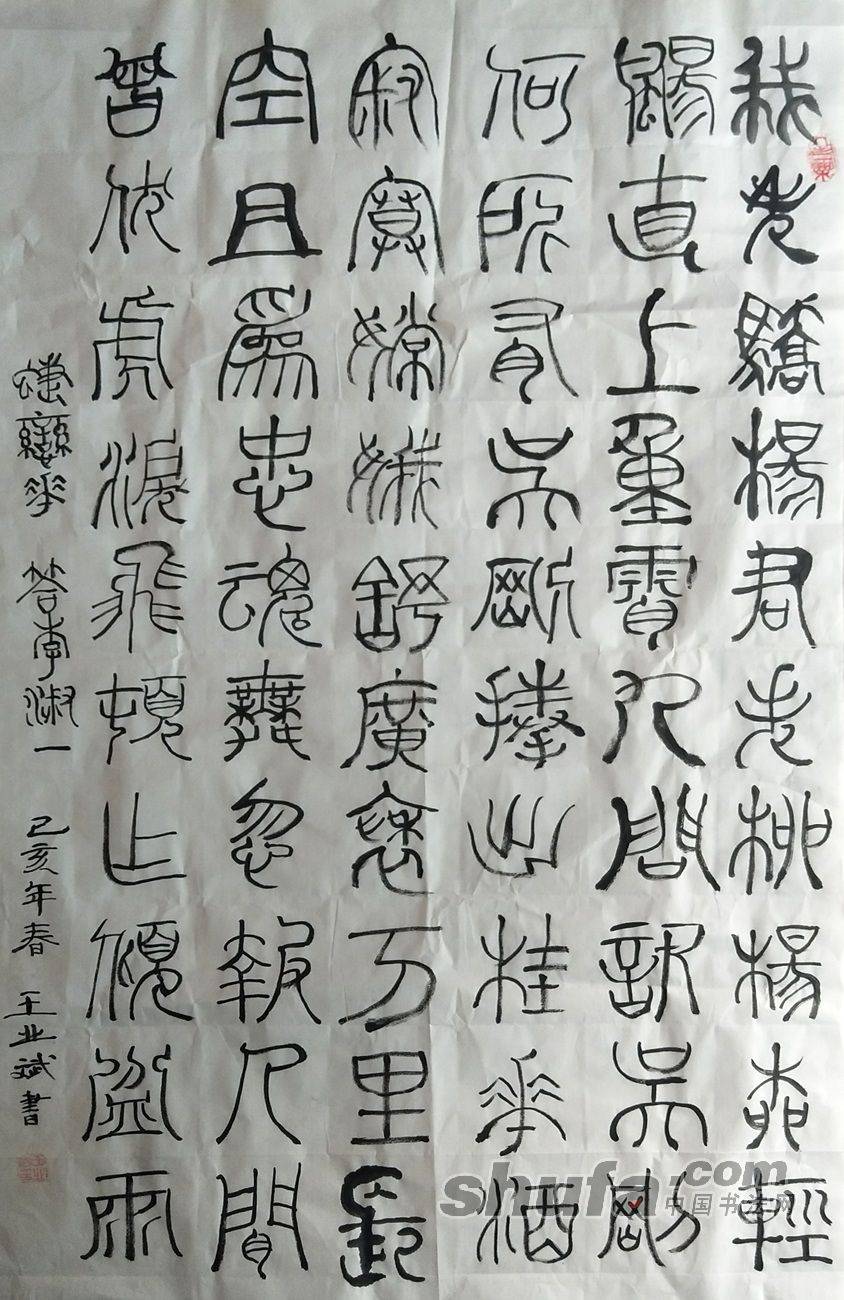 我失驕楊君失柳楊柳輕
颺直上重霄九問訊吳剛
何所有吳剛捧出桂花酒
寂寞嫦娥舒廣袖万里長
空且為忠魂舞忽報人間
曾伏虎淚飛頓作傾盆雨
蝶戀花 答李淑一 己亥年春 王业斌書
shufa.com
中国书法网